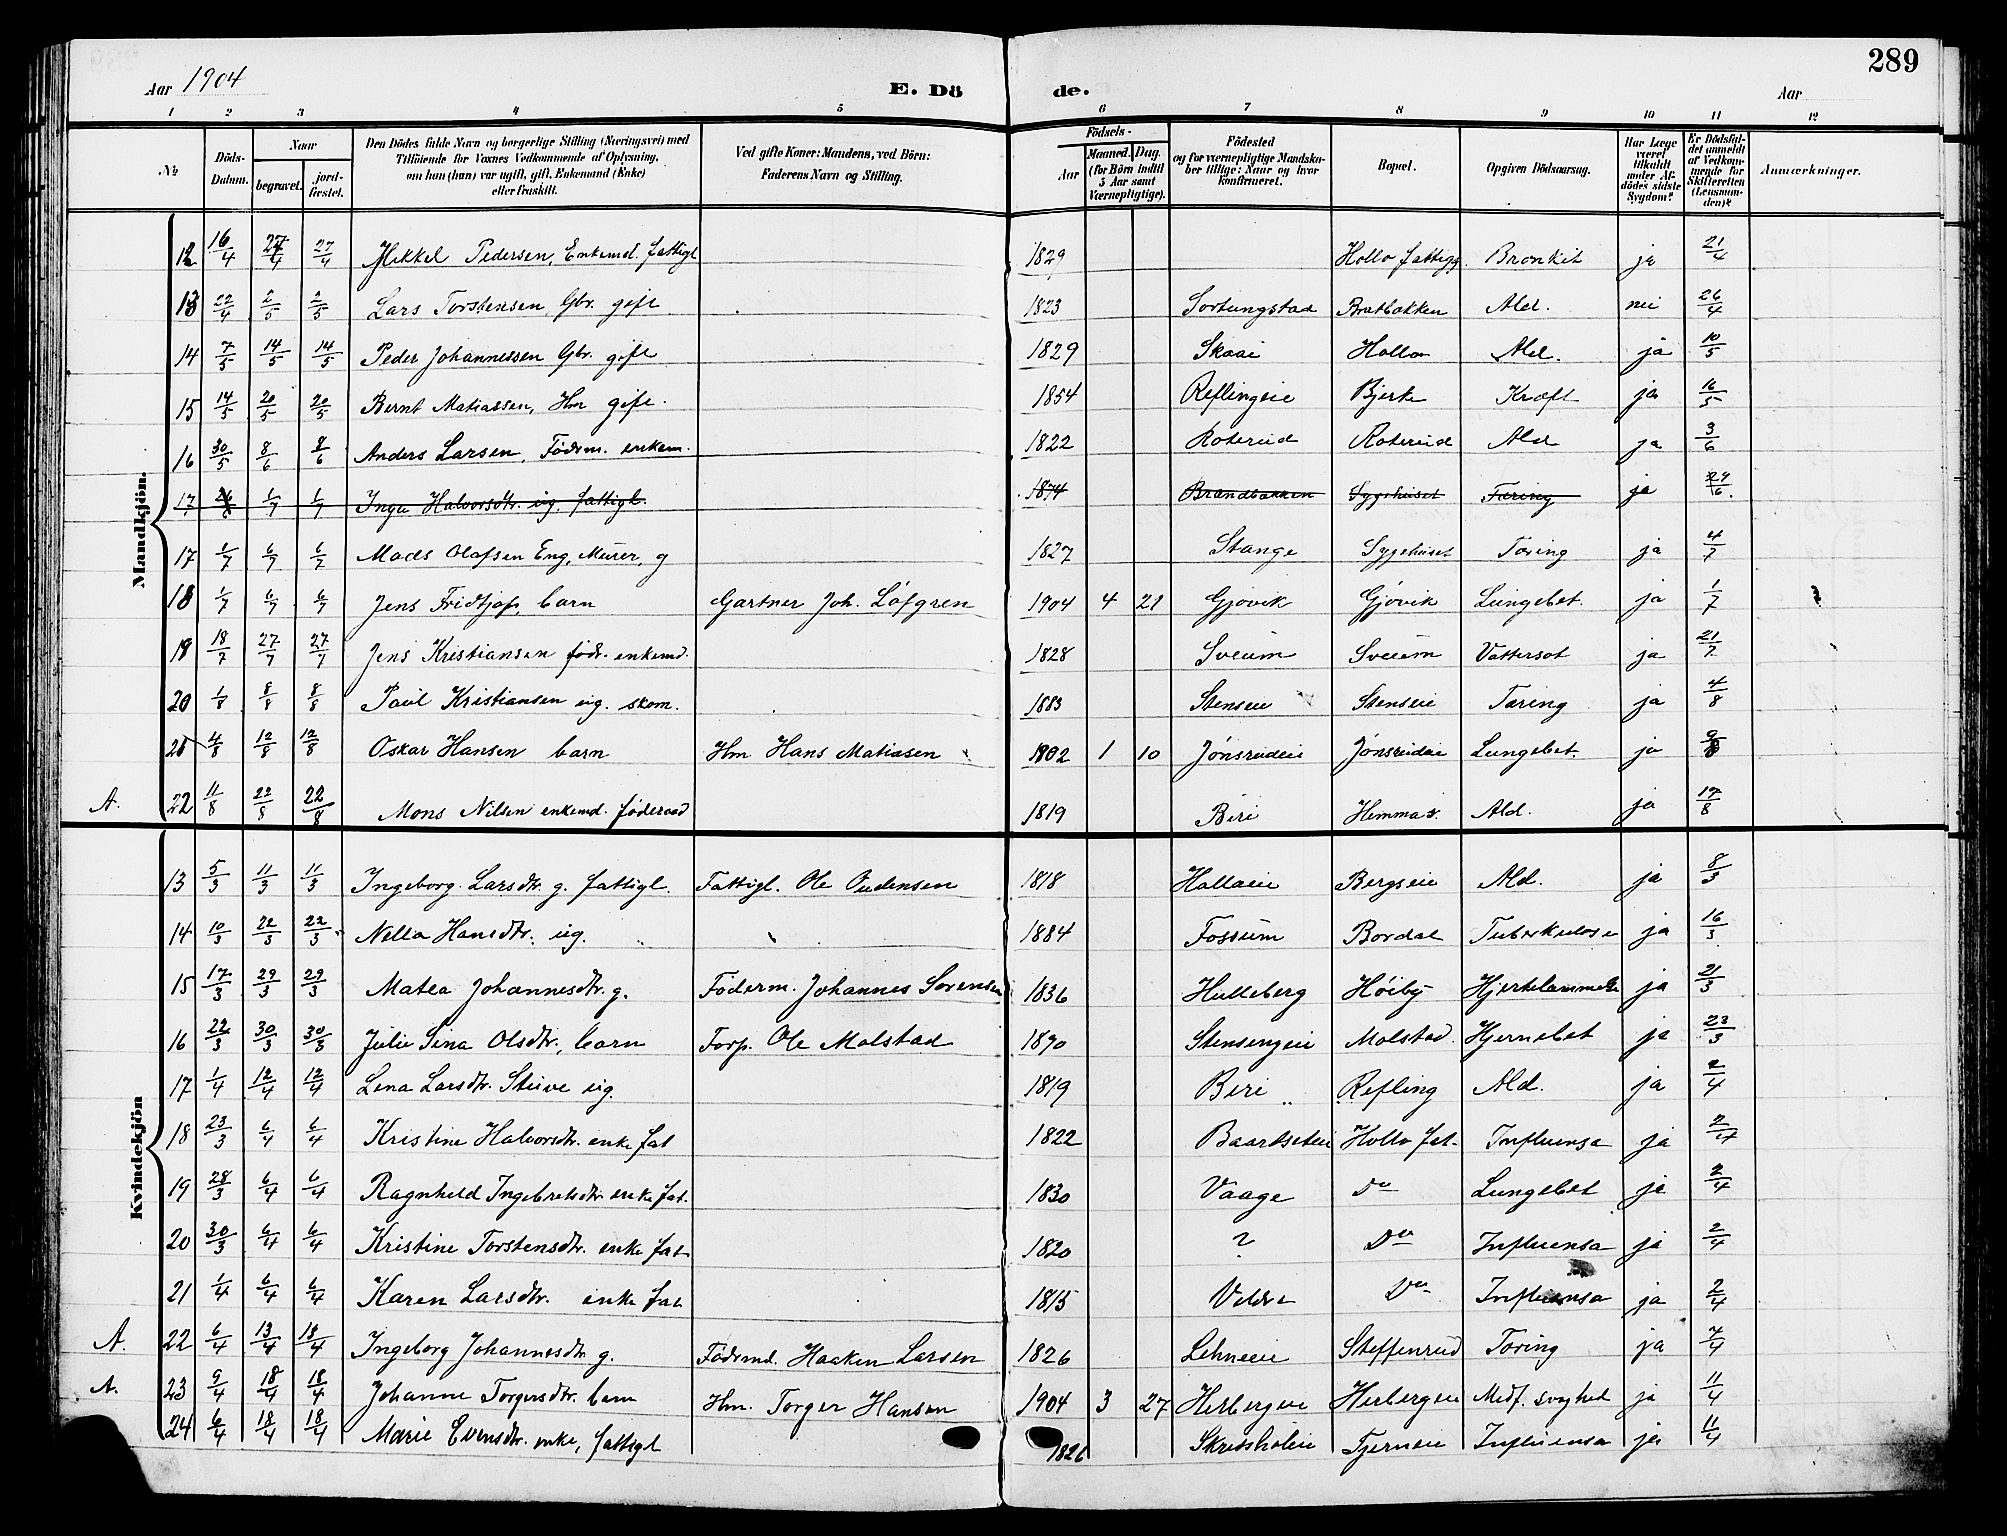 289
Aar 1904 E. Dö de. Aar
1 2 3 4 5 6 7 8 9 10 11 12
№ Döds-Datum. Naar begravet. jordfæstet. Den Dödes fulde Navn og borgerlige Stilling (Næringsvei) med Tilföiende for Voxnes Vedkommende af Oplysning, om han (hun) var ugift, gift, Enkemand (Enke) eller fraskilt. Ved gifte Koner: Mandens, ved Börn: Faderens Navn og Stilling. Födsels- Aar Maaned. Dag. (for Börn indtil 5 Aar samt Værnepligtige). Födested og for værnepligtige Mandskaber tillige: Naar og hvor konfirmeret. Bopæl. Opgiven Dödsaarsag. Har Læge været tilkaldt under Afdödes sidste Sygdom? Er Dödsfaldet anmeldt af Vedkommende for Skifteretten (Lensmanden)? Anmærkninger.
Mandkjön.
12 16/4 27/4 27/4 Mikkel Pedersen, Enkemd. fattigl 1829 Hollo fattigg. Bronkit ja 21/4
13 22/4 2/5 2/5 Lars Torstensen Gbr. gift 1823 Sortungstad Bratbakken Ald. nei 26/4
14 7/5 14/5 14/5 Peder Johannessen Gbr. gift 1829 Skaai Hollo Ald. ja 10/5
15 14/5 20/5 20/5 Bernt Matiassen, Hm gift. 1854 Reflingeie Bjerke Kræft ja 16/5
16 30/5 8/6 8/6 Anders Larsen, Födrm. enkem. 1822 Roterud Roterud Ald ja 3/6
17 1/7 1/7 Inga Halvorsdtr. ug. fattigl. 1874 Brændbakken Sygehuset Tæring ja 27/6
17 1/7 6/7 6/7 Mads Olafsen Eng, Murer, g 1827 Stange Sygehuset Tæring ja 4/7
18 1/7 6/7 6/7 Jens Fridtjof, barn Gartner Joh. Löfgren 1904 4 21 Gjövik Gjövik Lungebet. ja 1/7
19 18/7 27/7 27/7 Jens Kristiansen födr. enkemd. 1828 Sveum Sveum Vattersot ja 21/7
20 1/8 8/8 8/8 Paul Kristiansen ug. skom. 1883 Stenseie Stenseie Tæring ja 4/8
21 4/8 12/8 12/8 Oskar Hansen barn Hm Hans Matiasen 1902 1 10 Jönsrudeie Jönsrudeie Lungebet. ja 9/8
A. 22 11/8 22/8 22/8 Mons Nilsen enkemd. föderaad 1819 Biri Hemma Ald. ja 17/8
Kvindekjön
13 5/3 11/3 11/3 Ingeborg Larsdtr. g. fattigl. Fattigl. Ole Oudensen 1818 Hollaeie Bergseie Ald. ja 8/3
14 10/3 22/3 22/3 Nella Hansdtr. ug. 1884 Fossum Bordal Tuberkulose ja 16/3
15 17/3 29/3 29/3 Matea Johannesdtr. g. Föderm. Johannes Sorensen 1836 Hulleberg Höiby Hjertelammelse ja 21/3
16 22/3 30/3 30/3 Julie Sina Olsdtr., barn Forp. Ole Molstad 1890 Stensengeie Molstad Hjernebet ja 23/3
17 1/4 12/4 12/4 Lena Larsdtr. Stuve ug. 1819 Biri Refling Ald. ja 2/4
18 23/3 6/4 6/4 Kristine Halvorsdtr. enke fat 1822 Baardseteie Hollo fat. Influensa ja 2/4
19 28/3 6/4 6/4 Ragnhild Ingebretsdtr enke fat. 1830 Vaage Do Lungebet ja 2/4
20 30/3 6/4 6/4 Kristine Torstensdtr. enke fat 1820 ? Do Influensa ja 2/4
21 1/4 6/4 6/4 Karen Larsdtr. enke fat 1815 Veldre Do Influensa ja 2/4
A. 22 6/4 13/4 18/4 Ingeborg Johannesdtr g. Födrmd. Haaken Larsen 1826 Lehneeie Steffenrud Tæring ja 7/4
A. 23 9/4 18/4 18/4 Johanne Torgersdtr. barn Hm. Torger Hansen 1904 3 27 Herbergeie Herbergeie Medf. svaghed ja 11/4
24 6/4 18/4 18/4 Marie Evensdtr. enke, fattigl 1826 Tjerneie Influensa ja 11/4